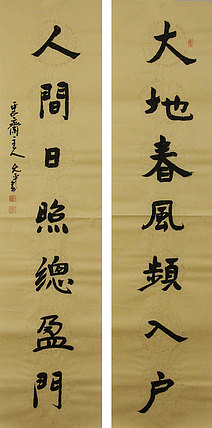 大地春風頻入户
人間日照總盈門
齋主人